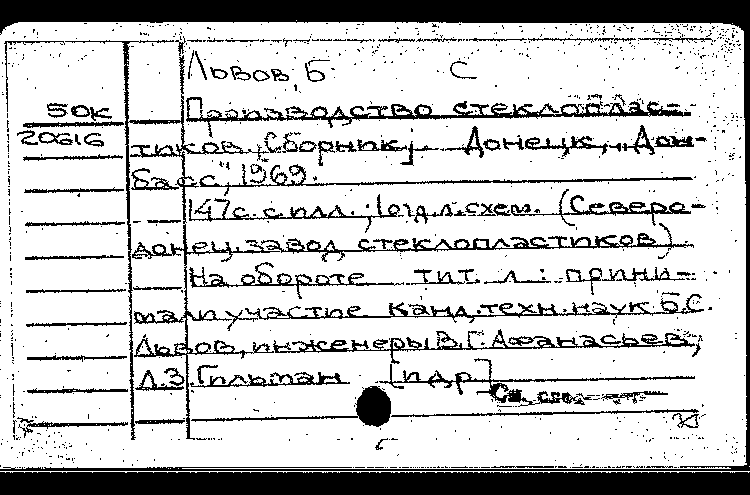 Львов, Б. С
50к Производство стеклоплас-
20616 тиков. [Сборник]. Донецк, "Дон-
басс", 1969.
147с. с илл.; 1 отд. л. схем. (Северо-
донец. завод стеклопластиков)
На обороте тит. л.: прини-
мали участие канд. техн. наук Б.С.
Львов, инженеры В.Г. Афанасьев,
Л.З. Гильман [и др.]
См. след.